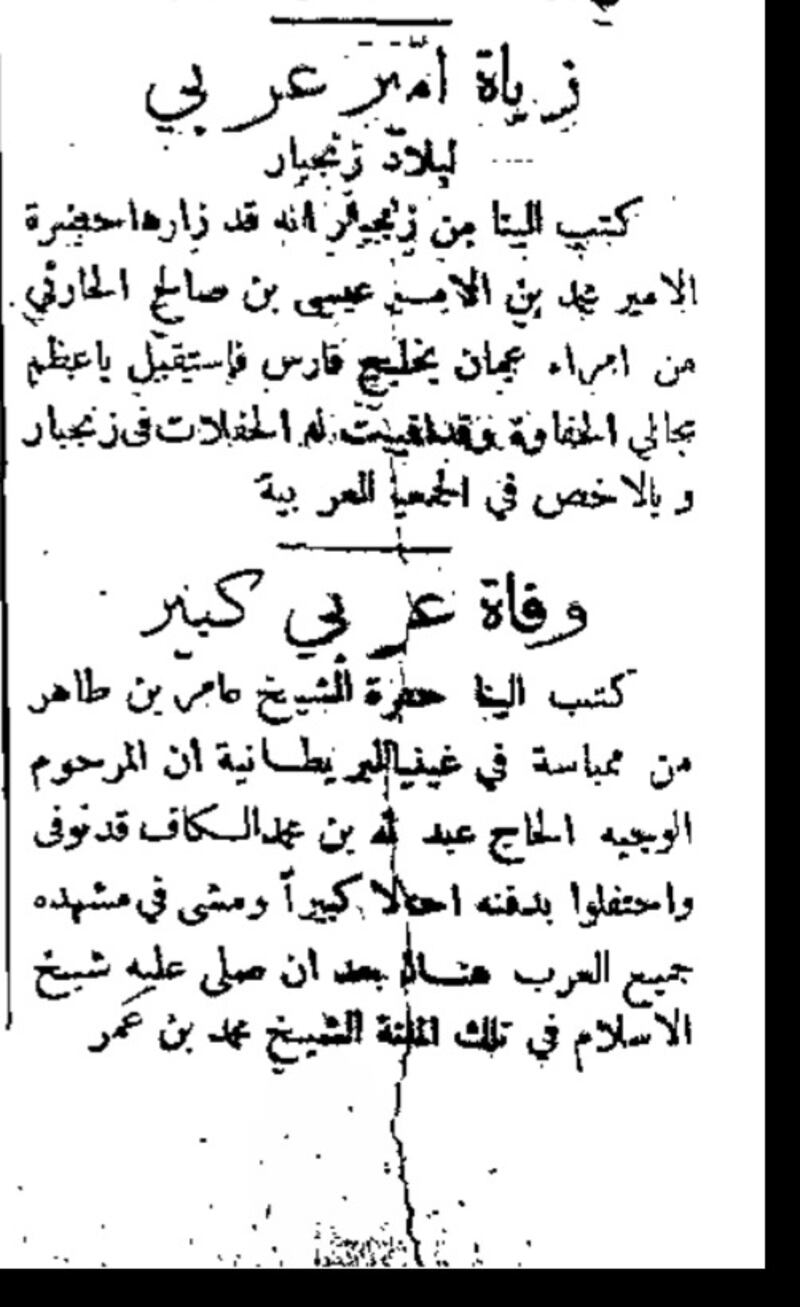 زياة امير عربي
لبلاد زنجبار
كتب الينا من زنجبار انه قد زارها حضرة
الامير محمد بن الامير عيسى بن صالح الحارثي
من امراء عمان بخليج فارس فاستقبل باعظم
مجالي الحفاوة وقد اقيمت له الحفلات في زنجبار
وبالاخص في الجمعية العربية
وفاة عربي كبير
كتب الينا حضرة الشيخ عامر بن طاهر
من ممباسة في غينيا البريطانية ان المرحوم
الوجيه الحاج عبد الله بن محمد السكاف قد توفى
واحتفلوا بدفنه احتفالا كبيراً ومشى في مشهده
جميع العرب هناك بعد ان صلى عليه شيخ
الاسلام في تلك الشيخ محمد بن عمر